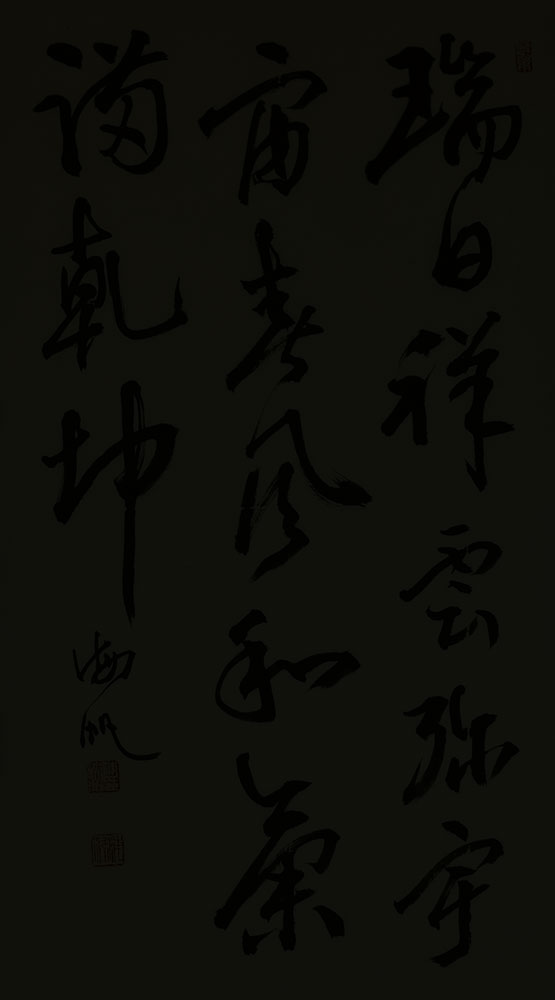 瑞日祥雲弥宇
宙春風和氣
滿乾坤
海帆